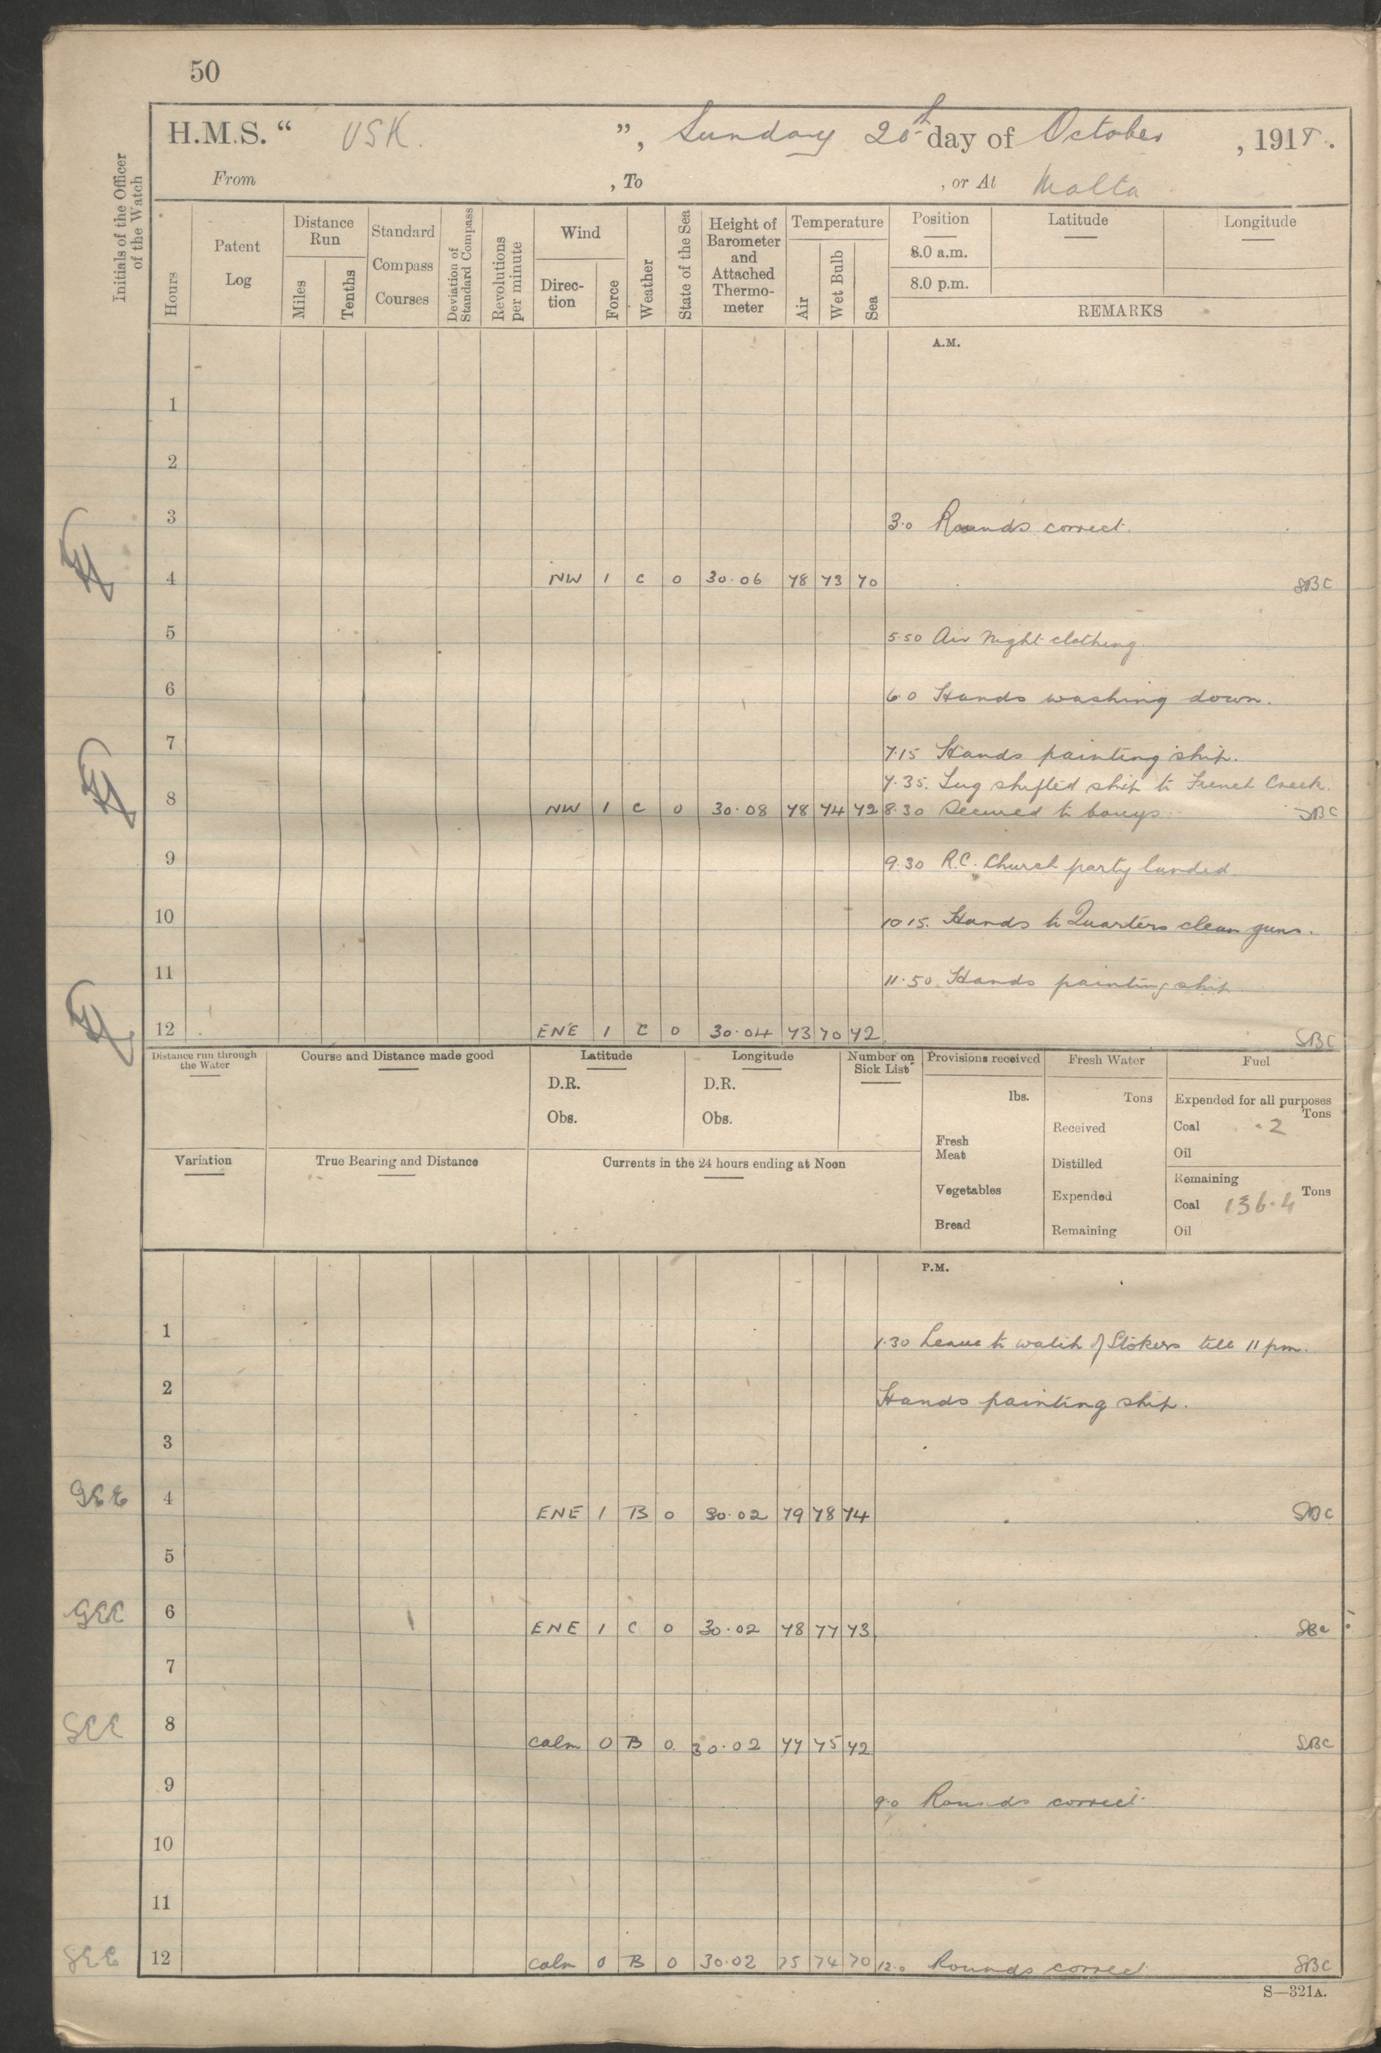 50
H.M.S. “ USK. ”, Sunday 20th day of October, 1918.
From , To , or At Malta
Initials of the Officer of the Watch
Hours
Patent Log
Distance Run
Miles
Tenths
Standard Compass Courses
Deviation of Standard Compass
Revolutions per minute
Wind
Direction
Force
Weather
State of the Sea
Height of Barometer and Attached Thermometer
Temperature
Air
Wet Bulb
Sea
Position Latitude Longitude
8.0 a.m.
8.0 p.m.
REMARKS
A.M.
1
2
3 3.0 Rounds correct.
4 NW 1 C 0 30.06 78 73 70 SBC
5 5.50 Air Night clothing.
6 6.0 Hands washing down.
7 7.15 Hands painting ship.
7.35. Tug shifted ship to French Creek.
8 NW 1 C 0 30.08 78 74 72 8.30 Secured to bouys. SBC
9 9.30 R.C. Church party landed.
10 10.15. Hands to Quarters clean guns.
11 11.50. Hands painting ship
12 ENE 1 C 0 30.04 73 70 72 SBC
Distance run through the Water
Course and Distance made good
Latitude
D.R.
Obs.
Longitude
D.R.
Obs.
Number on Sick List
Provisions received
lbs.
Fresh Meat
Vegetables
Bread
Fresh Water
Tons
Received
Distilled
Expended
Remaining
Fuel
Expended for all purposes
Tons
Coal .2
Oil
Remaining
Tons
Coal 136.4
Oil
Variation
True Bearing and Distance
Currents in the 24 hours ending at Noon
P.M.
1 1.30 Leave to watch of Stokers till 11 pm.
2 Hands painting ship.
3
GEE 4 ENE 1 B 0 30.02 79 78 74 SBC
5
GEE 6 ENE 1 C 0 30.02 78 77 73 SBC
7
GEE 8 Calm 0 B 0 30.02 77 75 72 SBC
9 9.0 Rounds correct.
10
11
GEE 12 Calm 0 B 0 30.02 75 74 70 12.0 Rounds correct SBC
S—321A.